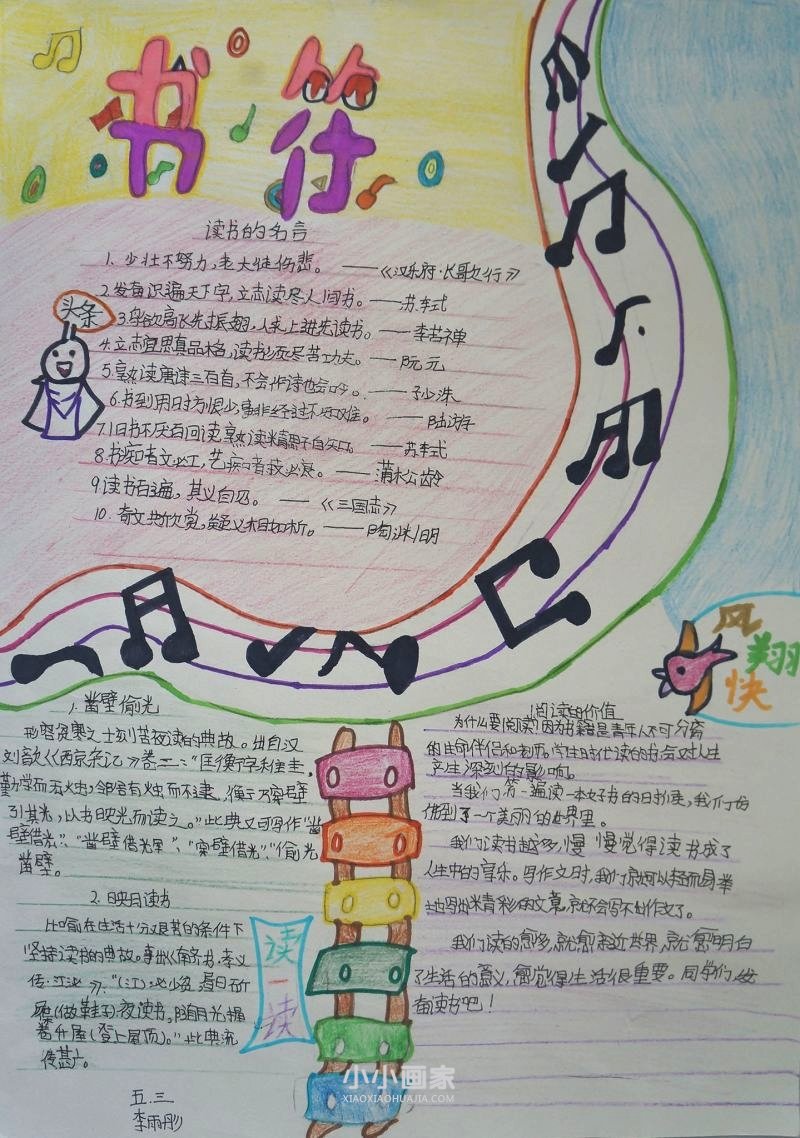 书符
读书的名言
1、少壮不努力，老大徒伤悲。——《汉乐府·长歌行》
2.发奋识遍天下字，立志读尽人间书。——苏轼
3.鸟欲高飞先振翅，人求上进先读书。——李苦禅
4.立志宜思真品格，读书须尽苦功夫。——阮元
5.熟读唐诗三百首，不会作诗也会吟。——孙洙
6.书到用时方恨少，事非经过不知难。——陆游
7.旧书不厌百回读，熟读精思子自知。——苏轼
8.书痴者文必工，艺痴者技必良。——蒲松龄
9.读书百遍，其义自见。——《三国志》
10.奇文共欣赏，疑义相如析。——陶渊明
头条
风
翔
快
1.凿壁偷光
形容贫寒之士刻苦夜读的典故。出自汉
刘歆《西京杂记》卷二："匡衡字稚圭，
勤学而无烛，邻舍有烛而不逮，衡乃穿壁
引其光，以书映光而读之。"此典又可写作"凿
壁借光"、"凿壁借光
"穿壁借光"、"偷光
凿壁。
2.映月读书
比喻在生活十分艰苦的条件下
坚持读书的典故。
传·江泌》："(江)泌少贫，昼日斫
屧(做鞋子)夜读书，随月光握
卷升屋(登上屋顶)。"此典流
传甚广。
读一读
阅读的价值
为什么要阅读?因为书籍是青年人不可分离
的生命伴侣和导师。学生时代读的书会对人生
产生深刻的影响。
当我们第一遍读一本好书的时候，我们仿
佛到了一个美丽的世界里。
我们读书越多，慢慢觉得读书成了
人生中的音乐。写作文时，我们就可以轻而易举
地写出精彩的文章，就不会写不出作文了。
我们读的愈多，就愈亲近世界，就愈明白
了生活的意义，愈觉得生活很重要。同学们，
奋读书吧！
五.三
李雨彤
小小画家
XIAOXIAOHUAJIA.COM